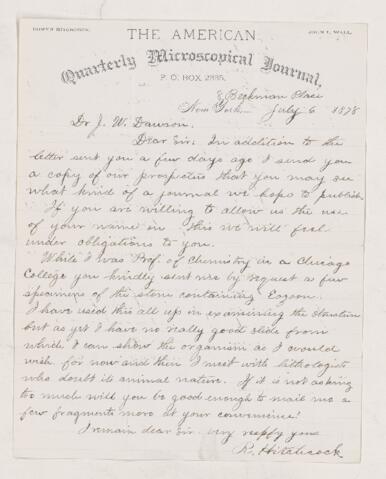 ROMYN HITCHCOCK. THE AMERICAN JOHN L. WALL.
Quarterly Microscopical Journal,
P. O. BOX 2335,
8 Beekman Place
New York, July 6 1878
Dr J. W. Dawson,
Dear Sir: In addition to the
letter sent you a few days ago I send you
a copy of our prospectus that you may see
what kind of a journal we hope to publish.
If you are willing to allow us the use
of your name in this we will feel
under obligations to you.
While I was Prof. of Chemistry in a Chicago
College you kindly sent me by request a few
specimens of the stone containing Eozoon.
I have used this all up in examining the structure
but as yet I have no really good slide from
which I can show the organism as I would
wish for now and then I meet with lithologists
who doubt its animal nature. If it is not asking
too much will you be good enough to mail me a
few fragments more at your convenience?
I remain dear Sir very respfy yours
R. Hitchcock